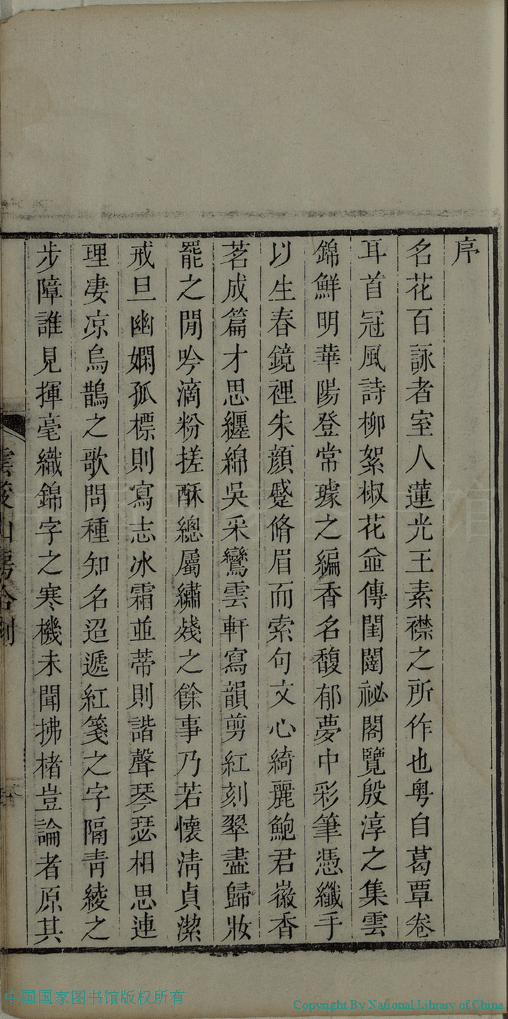 序
名花百詠者室人蓮光王素襟之所作也粵自葛覃卷
耳首冠風詩柳絮椒花並傳閨闥祕閣覽殷淳之集雲
錦鮮明華陽登常璩之編香名馥郁夢中彩筆憑纖手
以生春鏡裡朱顏蹙脩眉而索句文心綺麗鮑君嶶香
茗成篇才思纏綿吳采鸞雲軒寫韻剪紅刻翠盡歸妝
罷之閒吟滴粉搓酥總屬繡殘之餘事乃若懷清貞潔
戒旦幽嫻孤標則寫志冰霜並蒂則諧聲琴瑟相思連
理凄涼烏鵲之歌問種知名迢遞紅箋之字隔青綾之
步障誰見揮毫織錦字之寒機未聞拂楮豈論者原其
山房合刻
中国国家图书馆版权所有
Copyright By National Library of China